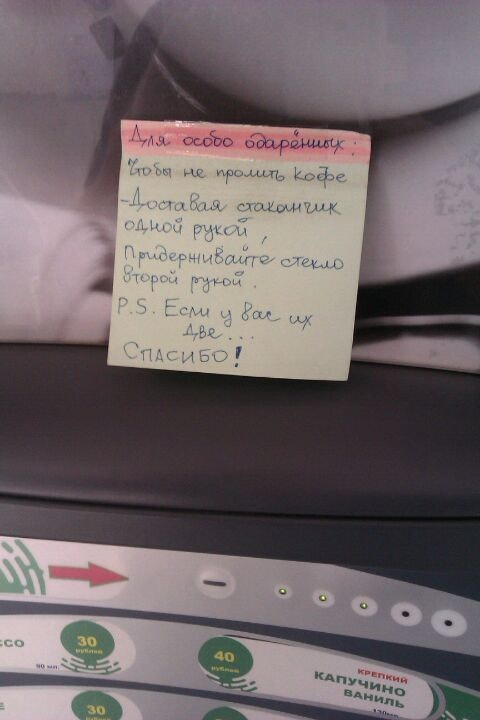 Для особо одарённых:
Чтобы не пролить кофе
-Доставая стаканчик
одной рукой,
Придерживайте стекло
второй рукой.
P.S. Если у вас их
две...
Спасибо!
30
рублей
90 мл.
40
рублей
КРЕПКИЙ
КАПУЧИНО
ВАНИЛЬ
30
40